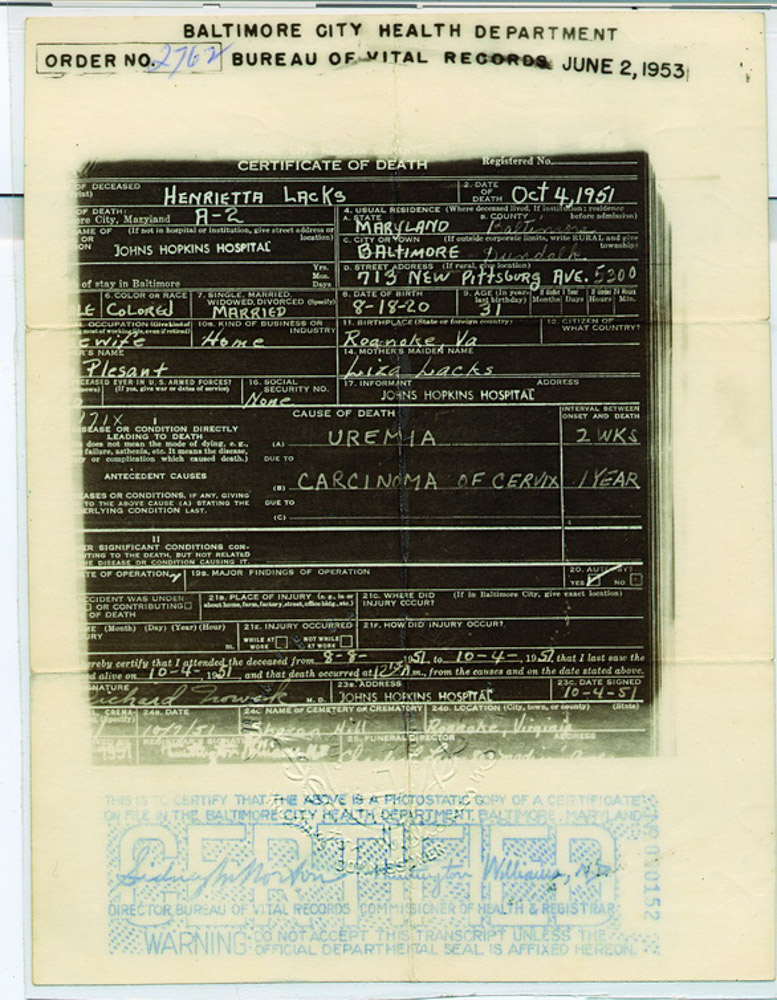 BALTIMORE CITY HEALTH DEPARTMENT
ORDER NO. 2762 BUREAU OF VITAL RECORDS JUNE 2, 1953
CERTIFICATE OF DEATH Registered No.
OF DECEASED HENRIETTA LACKS 2. DATE OF DEATH Oct 4, 1951
OF DEATH: re City, Maryland A-2 4. USUAL RESIDENCE (Where deceased lived. If institution: residence before admission)
A. STATE MARYLAND B. COUNTY Baltimore
AME OF (If not in hospital or institution, give street address or location) JOHNS HOPKINS HOSPITAL
C. CITY OR TOWN (If outside corporate limits, write RURAL and give township) BALTIMORE Dundalk
of stay in Baltimore Yrs. Mos. Days
D. STREET ADDRESS (If rural, give location) 713 NEW PITTSBURG AVE. 5300
LE 6. COLOR OR RACE COLORED 7. SINGLE, MARRIED, WIDOWED, DIVORCED (Specify) MARRIED 8. DATE OF BIRTH 8-18-20 9. AGE (In years last birthday) 31 Months Days Hours Min.
OCCUPATION (Give kind of most of working life, even if retired) ewife 10B. KIND OF BUSINESS OR INDUSTRY Home 11. BIRTHPLACE (State or foreign country) Roanoke, Va 12. CITIZEN OF WHAT COUNTRY?
R'S NAME Plesant 14. MOTHER'S MAIDEN NAME Liza Lacks
CEASED EVER IN U. S. ARMED FORCES? (If yes, give war or dates of service) 16. SOCIAL SECURITY NO. None 17. INFORMANT ADDRESS JOHNS HOPKINS HOSPITAL
171X CAUSE OF DEATH INTERVAL BETWEEN ONSET AND DEATH
SEASE OR CONDITION DIRECTLY LEADING TO DEATH
does not mean the mode of dying, e. g., failure, asthenia, etc. It means the disease, y or complication which caused death.)
(A) UREMIA 2 WKS
DUE TO
ANTECEDENT CAUSES
(B) CARCINOMA OF CERVIX 1 YEAR
ASES OR CONDITIONS, IF ANY, GIVING TO THE ABOVE CAUSE (A) STATING THE ERLYING CONDITION LAST.
DUE TO
(C)
II
ER SIGNIFICANT CONDITIONS CON-
TING TO THE DEATH, BUT NOT RELATED
E DISEASE OR CONDITION CAUSING IT.
TE OF OPERATION 19B. MAJOR FINDINGS OF OPERATION 20. AUTOPSY? YES NO
CCIDENT WAS UNDER- OR CONTRIBUTING OF DEATH 21B. PLACE OF INJURY (e. g., in or about home, farm, factory, street, office bldg., etc.) 21C. WHERE DID INJURY OCCUR? (If in Baltimore City, give exact location)
(Month) (Day) (Year) (Hour) 21E. INJURY OCCURRED WHILE AT WORK NOT WHILE AT WORK 21F. HOW DID INJURY OCCUR?
URY m.
ereby certify that I attended the deceased from 8-8- 1951, to 10-4-, 1951, that I last saw the
d alive on 10-4- 1951, and that death occurred at m., from the causes and on the date stated above.
NATURE M. D. 23B. ADDRESS JOHNS HOPKINS HOSPITAL 23C. DATE SIGNED 10-4-51
24B. DATE 24C. NAME OF CEMETERY OR CREMATORY 24D. LOCATION (City, town, or county) (State)
Hill Roanoke, Virginia
25. FUNERAL DIRECTOR ADDRESS
THIS IS TO CERTIFY THAT THE ABOVE IS A PHOTOSTATIC COPY OF A CERTIFICATE
ON FILE IN THE BALTIMORE CITY HEALTH DEPARTMENT, BALTIMORE, MARYLAND
CERTIFIED
Huntington Williams, M.D.
DIRECTOR, BUREAU OF VITAL RECORDS COMMISSIONER OF HEALTH & REGISTRAR
WARNING: DO NOT ACCEPT THIS TRANSCRIPT UNLESS THE
OFFICIAL DEPARTMENTAL SEAL IS AFFIXED HEREON.